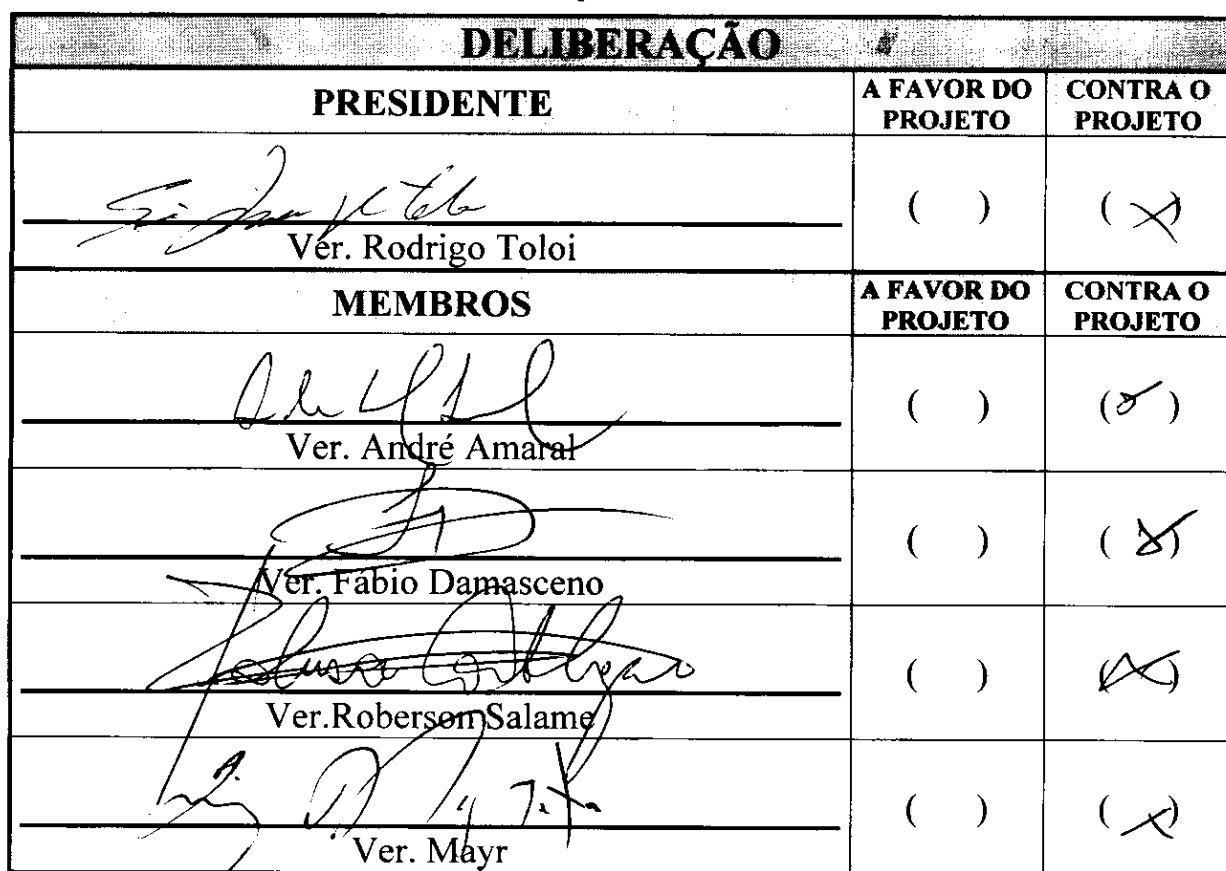 DELIBERAÇÃO
PRESIDENTE
A FAVOR DO PROJETO
CONTRA O PROJETO
( )
( X )
Ver. Rodrigo Toloi
MEMBROS
A FAVOR DO PROJETO
CONTRA O PROJETO
( )
( X )
Ver. André Amaral
( )
( X )
Ver. Fábio Damasceno
( )
( X )
Ver.Roberson Salame
( )
( X )
Ver. Mayr